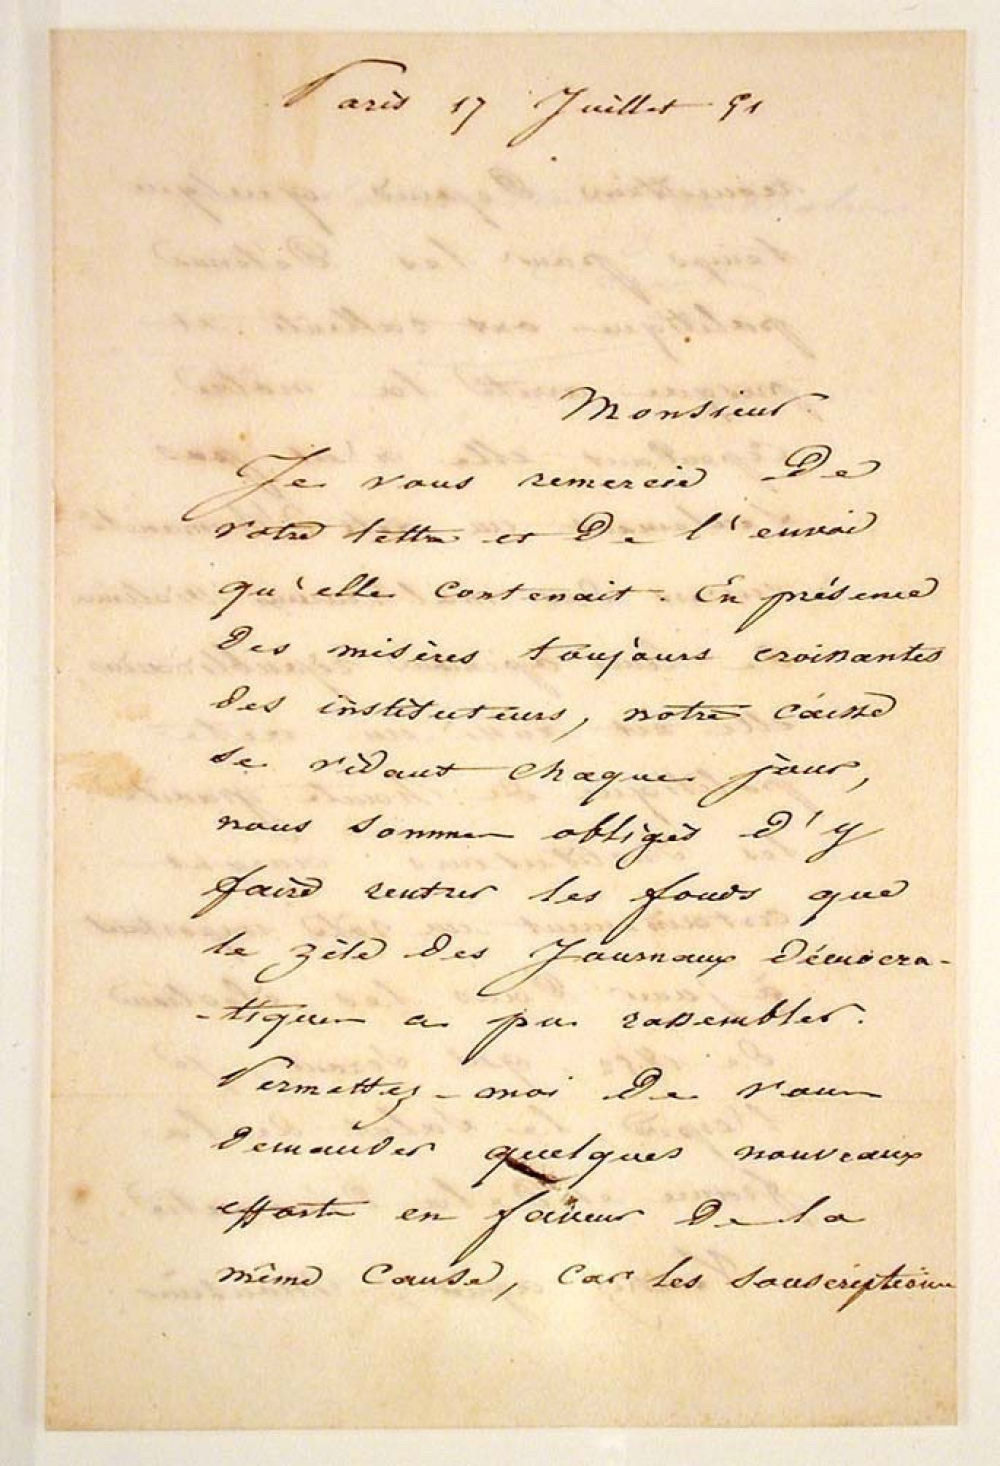 Paris 17 Juillet 51
Monsieur
Je vous remercie de
votre lettre et de l'envoi
qu'elle contenait. En présence
des misères toujours croissantes
des instituteurs, notre caisse
se vidant chaque jour,
nous sommes obligés d'y
faire rentrer les fonds que
le zèle des Journaux démocra-
-tiques a pu rassembler.
Permettez-moi de vous
demander quelques nouveaux
efforts en faveur de la
même cause, car les souscriptions